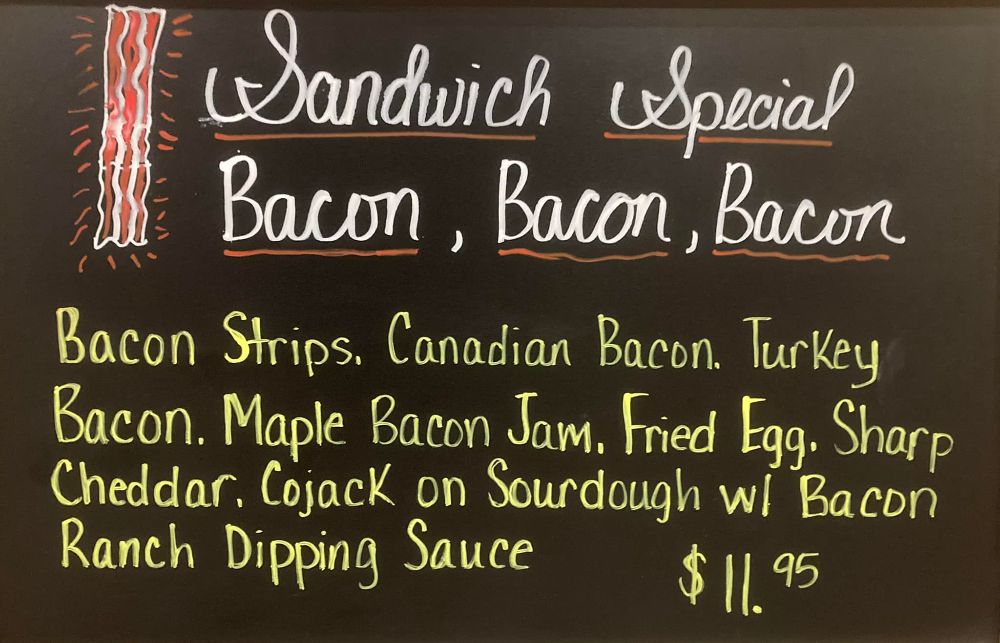 Sandwich Special
Bacon, Bacon, Bacon
Bacon Strips. Canadian Bacon. Turkey
Bacon. Maple Bacon Jam. Fried Egg. Sharp
Cheddar. Cojack on Sourdough w/ Bacon
Ranch Dipping Sauce
$11.95